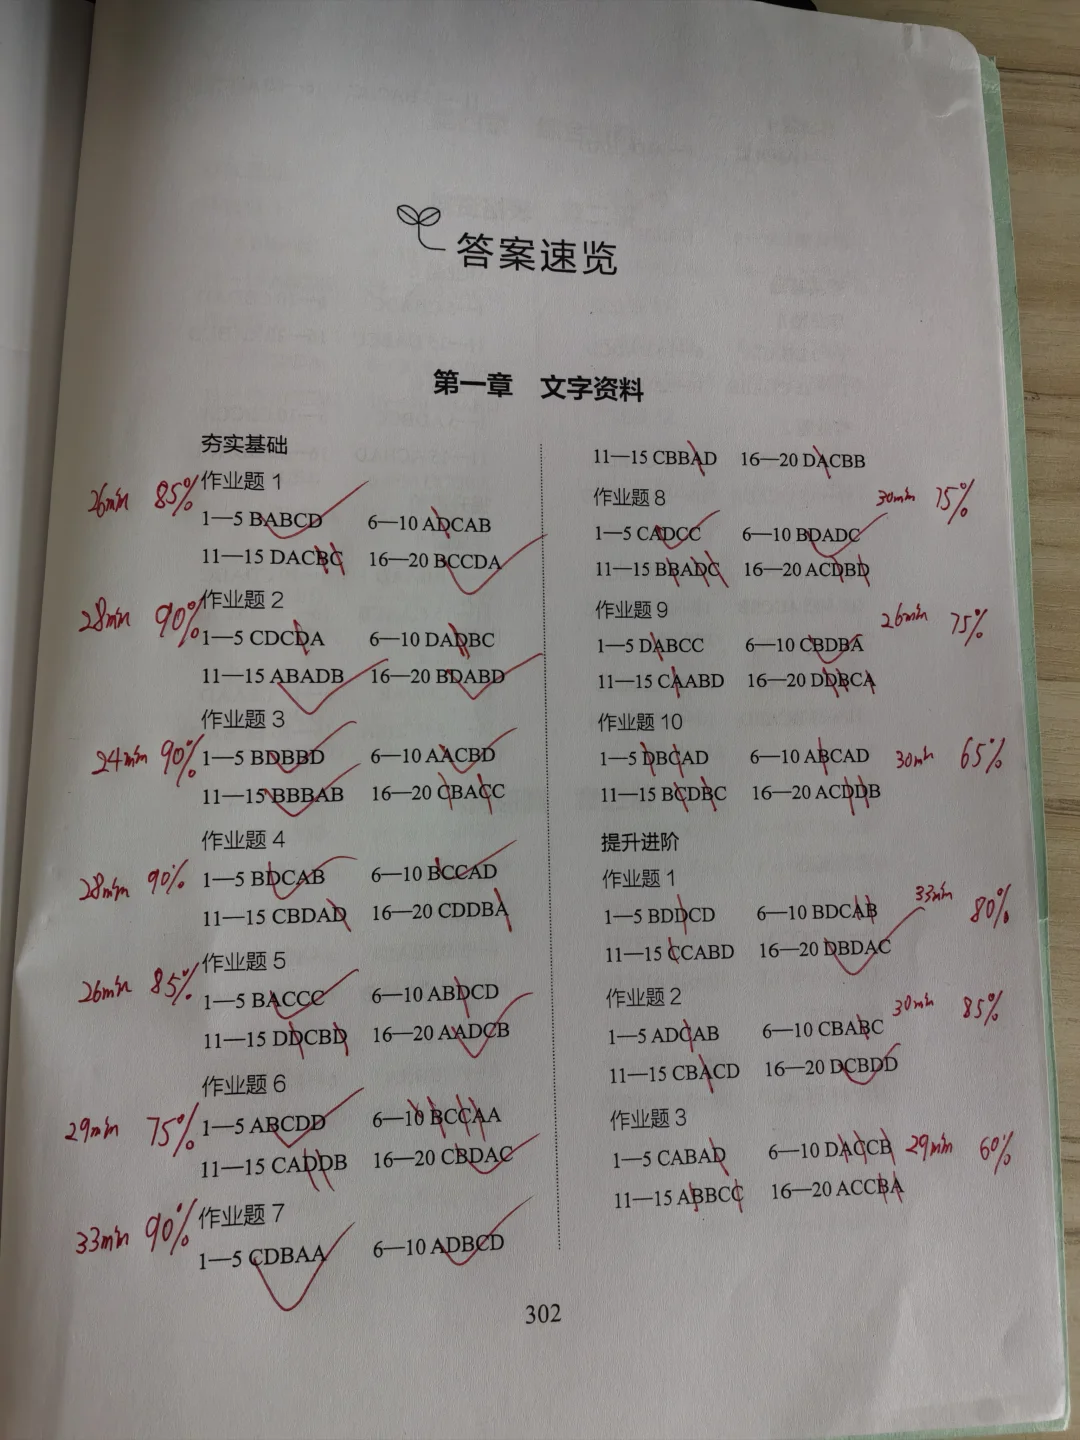 答案速览
第一章 文字资料
夯实基础
26min 85% 作业题 1
1—5 BABCD 6—10 ADCAB
11—15 DACBC 16—20 BCCDA
28min 90% 作业题 2
1—5 CDCDA 6—10 DADBC
11—15 ABADB 16—20 BDABD
作业题 3
24min 90% 1—5 BDBBD 6—10 AACBD
11—15 BBBAB 16—20 CBACC
作业题 4
28min 90% 1—5 BDCAB 6—10 BCCAD
11—15 CBDAD 16—20 CDDBA
作业题 5
26min 85% 1—5 BACCC 6—10 ABDCD
11—15 DDCBD 16—20 AADCB
作业题 6
29min 75% 1—5 ABCDD 6—10 BCCAA
11—15 CADDB 16—20 CBDAC
33min 90% 作业题 7
1—5 CDBAA 6—10 ADBCD
11—15 CBBAD 16—20 DACBB
作业题 8 30min 75%
1—5 CADCC 6—10 BDADC
11—15 BBADC 16—20 ACDBD
作业题 9 26min 75%
1—5 DABCC 6—10 CBDBA
11—15 CAABD 16—20 DDBCA
作业题 10
1—5 DBCAD 6—10 ABCAD 30min 65%
11—15 BCDBC 16—20 ACDDB
提升进阶
作业题 1 33min 80%
1—5 BDDCD 6—10 BDCAB
11—15 CCABD 16—20 DBDAC
作业题 2 30min 85%
1—5 ADCAB 6—10 CBABC
11—15 CBACD 16—20 DCBDD
作业题 3
1—5 CABAD 6—10 DACCB 29min 60%
11—15 ABBCC 16—20 ACCBA
302